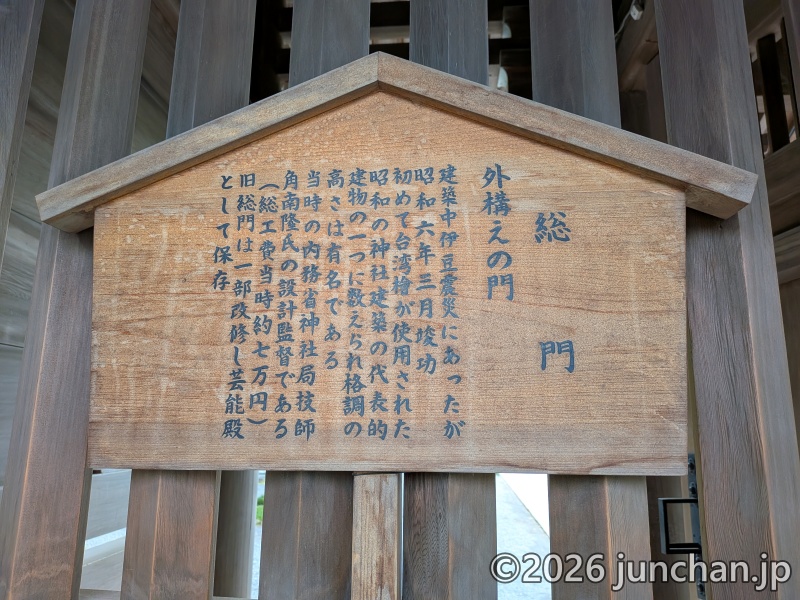 総門
外構えの門
建築中伊豆震災にあったが
昭和六年三月竣功
初めて台湾檜が使用された
昭和の神社建築の代表的
建物の一つに数えられ格調の
高さは有名である
当時の内務省神社局技師
角南隆氏の設計監督である
(総工費当時約七万円)
旧総門は一部改修し芸能殿
として保存
©2026 junchan.jp